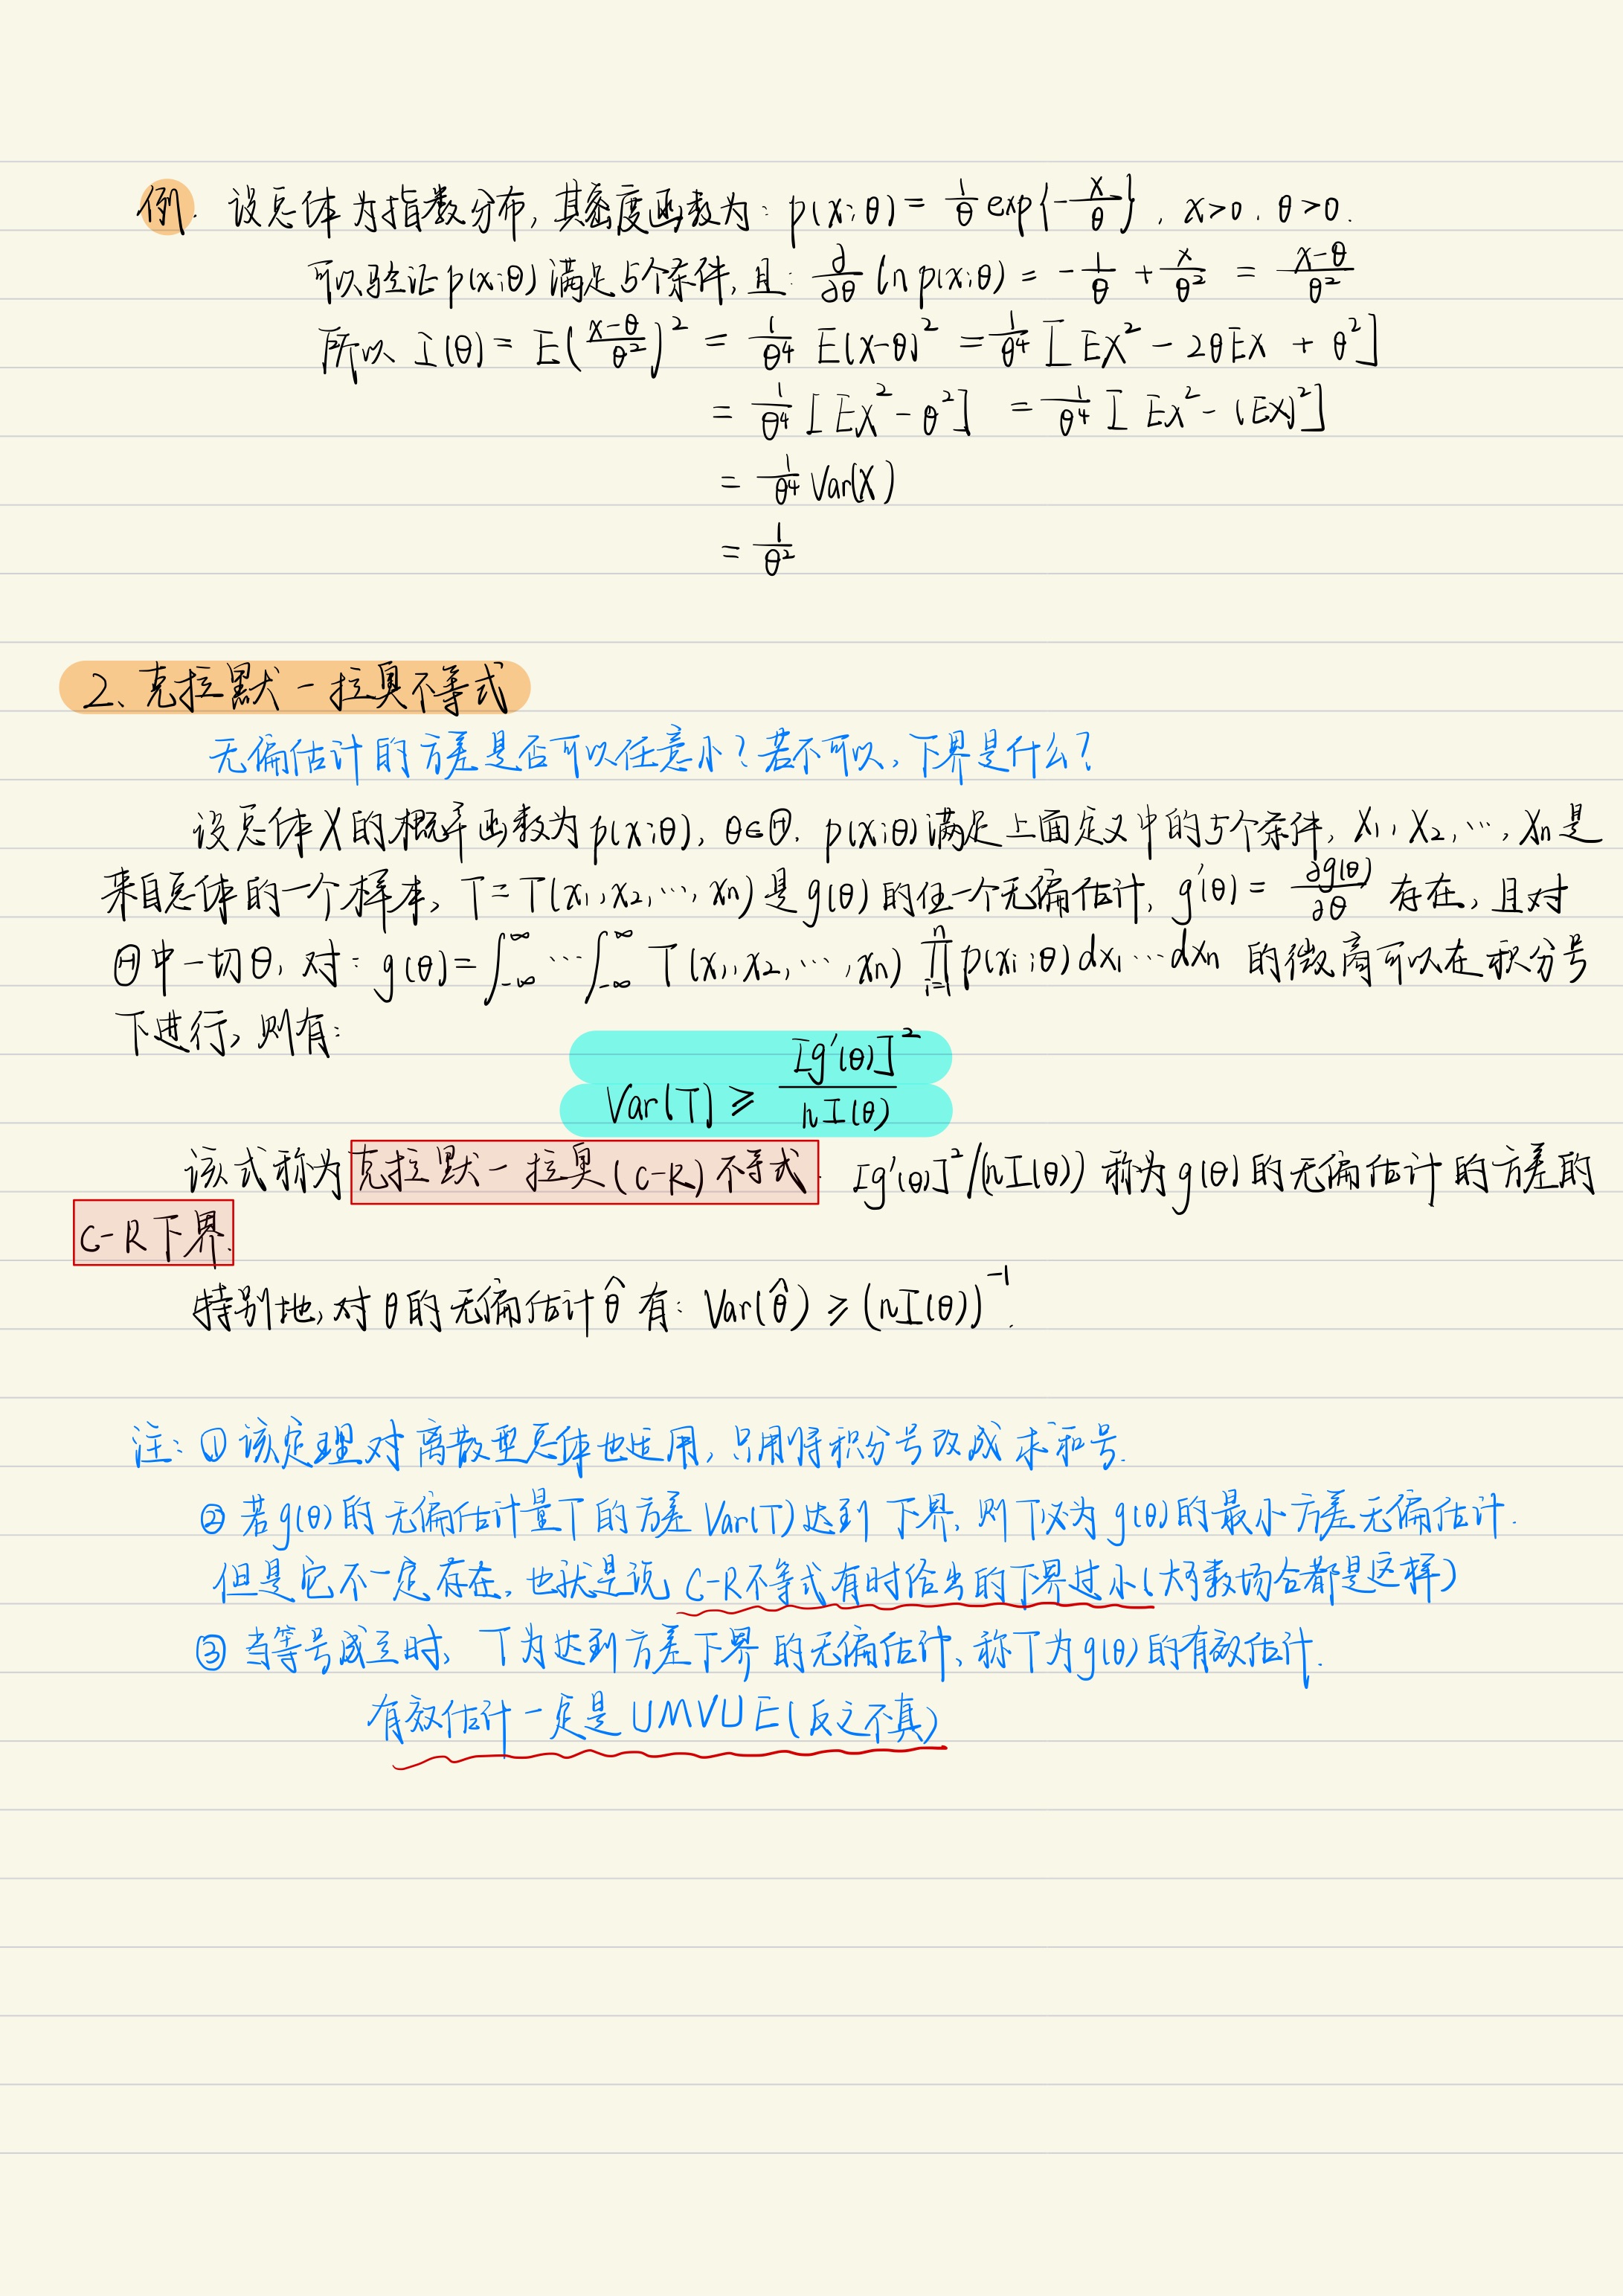 例. 设总体为指数分布, 其密度函数为: p(x;θ) = 1/θ exp{-x/θ}, x>0, θ>0.
可以验证p(x;θ)满足5个条件, 且: ∂/∂θ ln p(x;θ) = -1/θ + x/θ² = (x-θ)/θ²
所以 I(θ) = E((x-θ)/θ²)² = 1/θ⁴ E(x-θ)² = 1/θ⁴ [EX² - 2θEX + θ²]
= 1/θ⁴ [EX² - θ²] = 1/θ⁴ [EX² - (EX)²]
= 1/θ⁴ Var(X)
= 1/θ²
2、克拉默-拉奥不等式
无偏估计的方差是否可以任意小? 若不可以, 下界是什么?
设总体X的概率函数为p(x;θ), θ∈Θ. p(x;θ)满足上面定义中的5个条件, x₁, x₂, ⋯, xn是
来自总体的一个样本, T = T(x₁, x₂, ⋯, xn)是g(θ)的任一个无偏估计, g′(θ) = ∂g(θ)/∂θ 存在, 且对
Θ中一切θ, 对: g(θ) = ∫_{-∞}^{∞} ⋯ ∫_{-∞}^{∞} T(x₁, x₂, ⋯, xn) ∏_{i=1}^{n} p(xi;θ) dx₁⋯dxn 的微商可以在积分号
下进行, 则有:
Var(T) ≥ [g′(θ)]² / nI(θ)
该式称为克拉默-拉奥(C-R)不等式. [g′(θ)]²/(nI(θ)) 称为g(θ)的无偏估计的方差的
C-R下界.
特别地, 对θ的无偏估计θ̂有: Var(θ̂) ≥ (nI(θ))⁻¹.
注: ① 该定理对离散型总体也适用, 只用将积分号改成求和号.
② 若g(θ)的无偏估计量T的方差Var(T)达到下界, 则T必为g(θ)的最小方差无偏估计.
但是它不一定存在, 也就是说C-R不等式有时给出的下界过小(大多数场合都是这样)
③ 当等号成立时, T为达到方差下界的无偏估计, 称T为g(θ)的有效估计.
有效估计一定是UMVUE(反之不真)